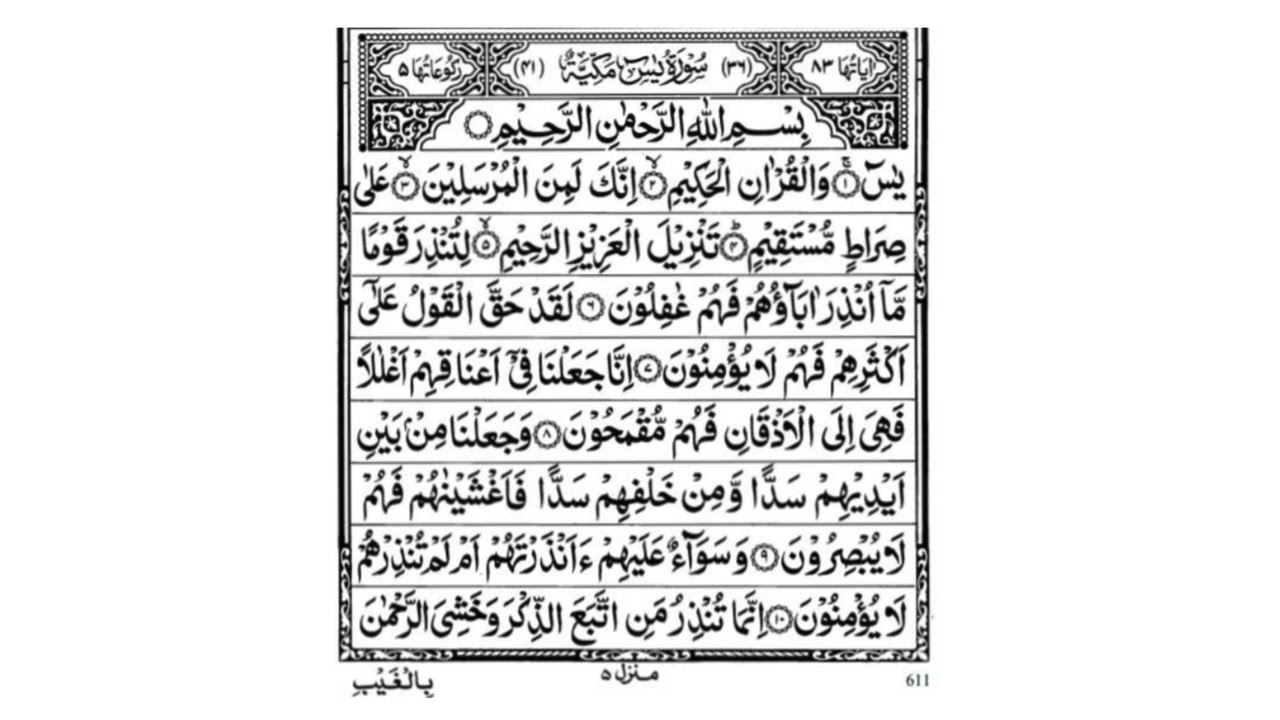 اٰیَاتُهَا ۸۳ (۳۶) سُوْرَةُ یٰسٓ مَكِّیَّةٌ (۴۱) رُكُوْعَاتُهَا ۵
بِسْمِ اللّٰهِ الرَّحْمٰنِ الرَّحِیْمِ
یٰسٓ ۚ‏﴿۱﴾ وَالْقُرْاٰنِ الْحَكِیْمِ ۙ‏﴿۲﴾ اِنَّكَ لَمِنَ الْمُرْسَلِیْنَ ۙ‏﴿۳﴾ عَلٰی
صِرَاطٍ مُّسْتَقِیْمٍ ؕ‏﴿۴﴾ تَنْزِیْلَ الْعَزِیْزِ الرَّحِیْمِ ۙ‏﴿۵﴾ لِتُنْذِرَ قَوْمًا
مَّاۤ اُنْذِرَ اٰبَآؤُهُمْ فَهُمْ غٰفِلُوْنَ ﴿۶﴾ لَقَدْ حَقَّ الْقَوْلُ عَلٰۤی
اَكْثَرِهِمْ فَهُمْ لَا یُؤْمِنُوْنَ ﴿۷﴾ اِنَّا جَعَلْنَا فِیْۤ اَعْنَاقِهِمْ اَغْلٰلًا
فَهِیَ اِلَی الْاَذْقَانِ فَهُمْ مُّقْمَحُوْنَ ﴿۸﴾ وَجَعَلْنَا مِنْۢ بَیْنِ
اَیْدِیْهِمْ سَدًّا وَّمِنْ خَلْفِهِمْ سَدًّا فَاَغْشَیْنٰهُمْ فَهُمْ
لَا یُبْصِرُوْنَ ﴿۹﴾ وَسَوَآءٌ عَلَیْهِمْ ءَاَنْذَرْتَهُمْ اَمْ لَمْ تُنْذِرْهُمْ
لَا یُؤْمِنُوْنَ ﴿۱۰﴾ اِنَّمَا تُنْذِرُ مَنِ اتَّبَعَ الذِّكْرَ وَخَشِیَ الرَّحْمٰنَ
بِالْغَیْبِ منزل ۵ 611